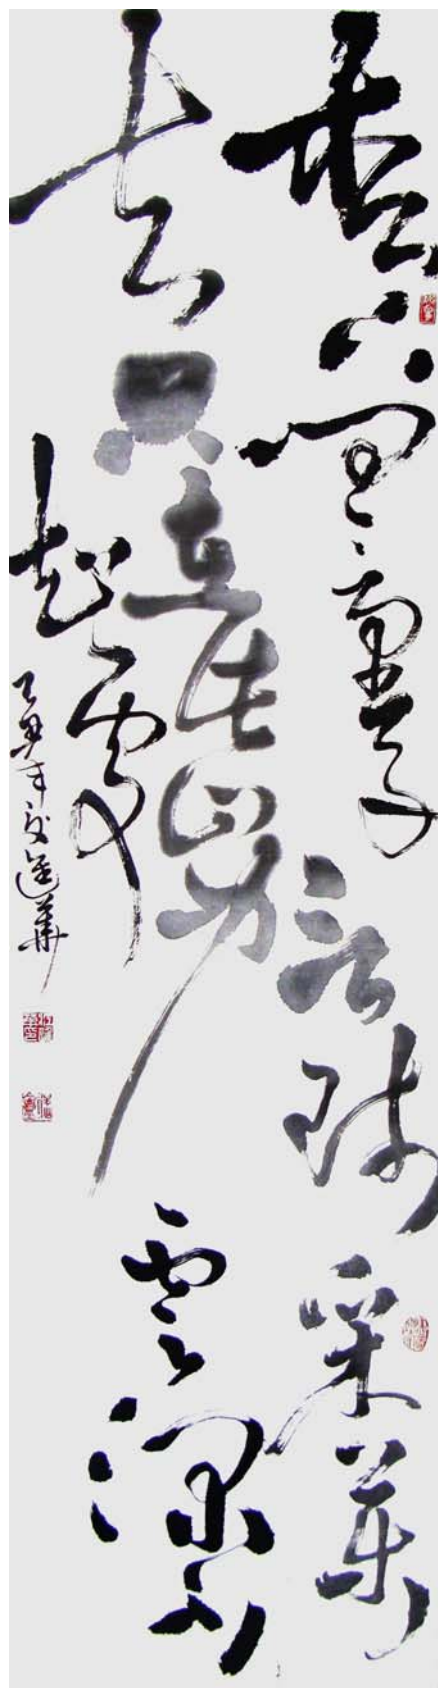 松下問童子言師采藥
去只在此山中雲深不
知處
己丑年